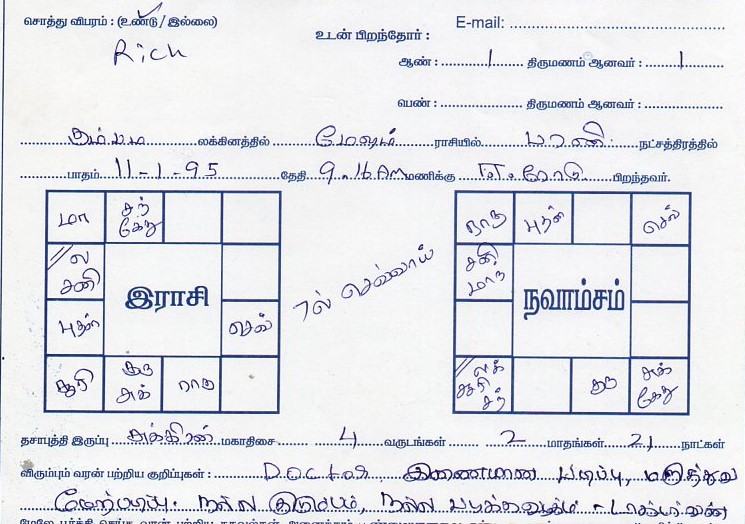 சொத்து விபரம் : (உண்டு / இல்லை)
E-mail:
Rich
உடன் பிறந்தோர் :
ஆண் : 1 திருமணம் ஆனவர் : 1
பெண் : திருமணம் ஆனவர் :
கும்பம் லக்கினத்தில் மேஷம் ராசியில் பரணி நட்சத்திரத்தில்
பாதம் 11-1-95 தேதி 9.16 AM மணிக்கு ஈரோடு பிறந்தவர்.
மா சந் கேது
ல சனி
புதன்
செவ்
சூரி குரு சுக் ராகு
இராசி
7ல் செவ்வாய்
ராகு புதன் செவ்
சனி மாந்
லக் சூரி சந் குரு சுக் கேது
நவாம்சம்
தசாபுத்தி இருப்பு சுக்கிரன் மகாதிசை 4 வருடங்கள் 2 மாதங்கள் 21 நாட்கள்
விரும்பும் வரன் பற்றிய குறிப்புகள் : Doctor, இணையான படிப்பு, மருத்துவ
மேற்படிப்பு. நல்ல குடும்பம், நல்ல